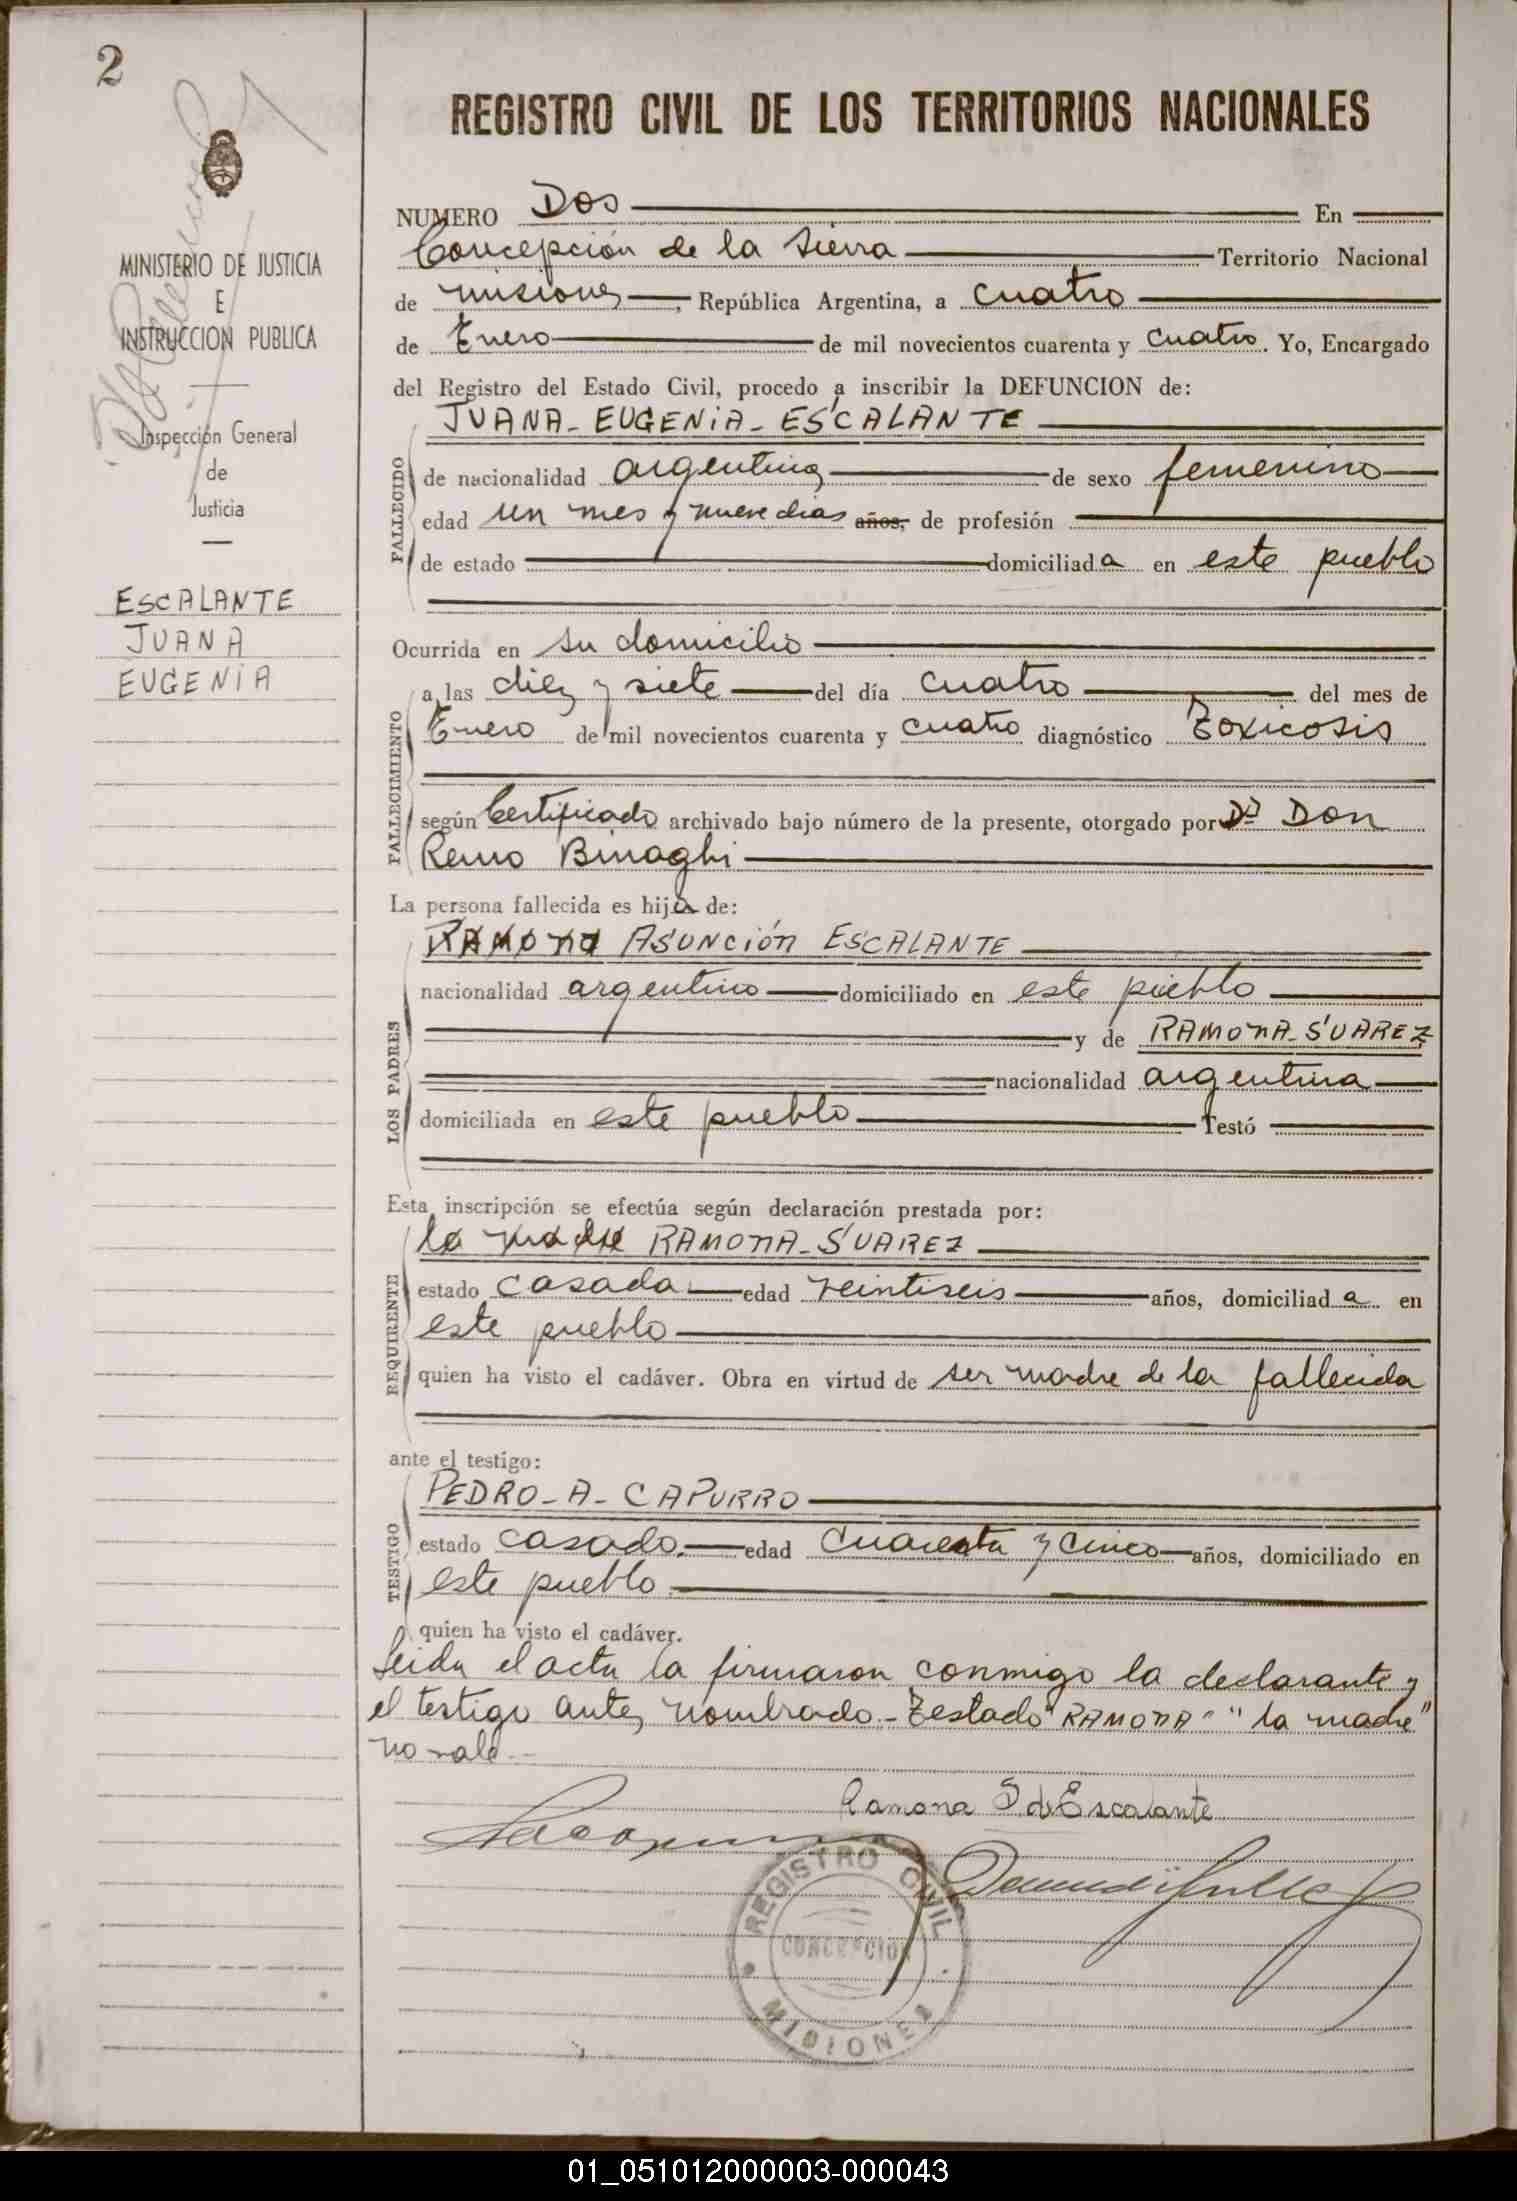 2
MINISTERIO DE JUSTICIA
E
INSTRUCCION PUBLICA
Inspección General
de
Justicia
ESCALANTE
JUANA
EUGENIA
REGISTRO CIVIL DE LOS TERRITORIOS NACIONALES
NUMERO Dos En
Concepción de la Sierra Territorio Nacional
de Misiones, República Argentina, a cuatro
de Enero de mil novecientos cuarenta y cuatro. Yo, Encargado
del Registro del Estado Civil, procedo a inscribir la DEFUNCION de:
JUANA-EUGENIA-ESCALANTE
FALLECIDO
de nacionalidad argentina de sexo femenino
edad un mes y nueve dias años, de profesión
de estado domiciliada en este pueblo
Ocurrida en su domicilio
FALLECIMIENTO
a las diez y siete del día cuatro del mes de
Enero de mil novecientos cuarenta y cuatro diagnóstico Toxicosis
según Certificado archivado bajo número de la presente, otorgado por Dr Don
Remo Binaghi
La persona fallecida es hija de:
LOS PADRES
RAMONA ASUNCIÓN ESCALANTE
nacionalidad argentino domiciliado en este pueblo
y de RAMONA-SUAREZ
nacionalidad argentina
domiciliada en este pueblo Testó
Esta inscripción se efectúa según declaración prestada por:
REQUIRENTE
la madre RAMONA-SUAREZ
estado casada edad veintiseis años, domiciliada en
este pueblo
quien ha visto el cadáver. Obra en virtud de ser madre de la fallecida
ante el testigo:
TESTIGO
PEDRO-A-CAPURRO
estado casado. edad cuarenta y cinco años, domiciliado en
este pueblo
quien ha visto el cadáver.
Leida el acta la firmaron conmigo la declarante y
el testigo antes nombrado.- Testado "RAMONA" "la madre"
no vale.-
Ramona S. de Escalante
REGISTRO CIVIL
CONCEPCION
MISIONES
01_051012000003-000043